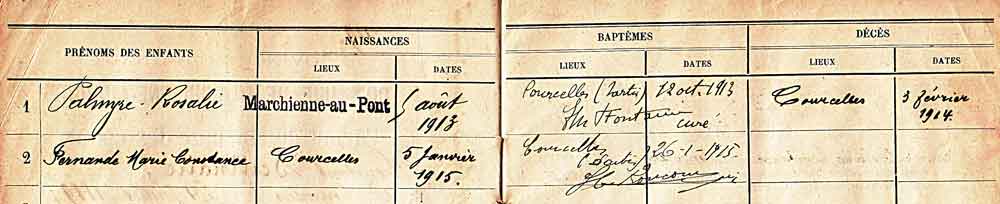 PRÉNOMS DES ENFANTS NAISSANCES BAPTÊMES DÉCÈS
LIEUX DATES LIEUX DATES LIEUX DATES
1 Palmyre-Rosalie Marchienne-au-Pont 5 août 1913 Courcelles (Sarty) 12 oct. 1913 Courcelles 3 février 1914.
curé
2 Fernande Marie Constance Courcelles 5 Janvier 1915. Courcelles 26-1-1915.